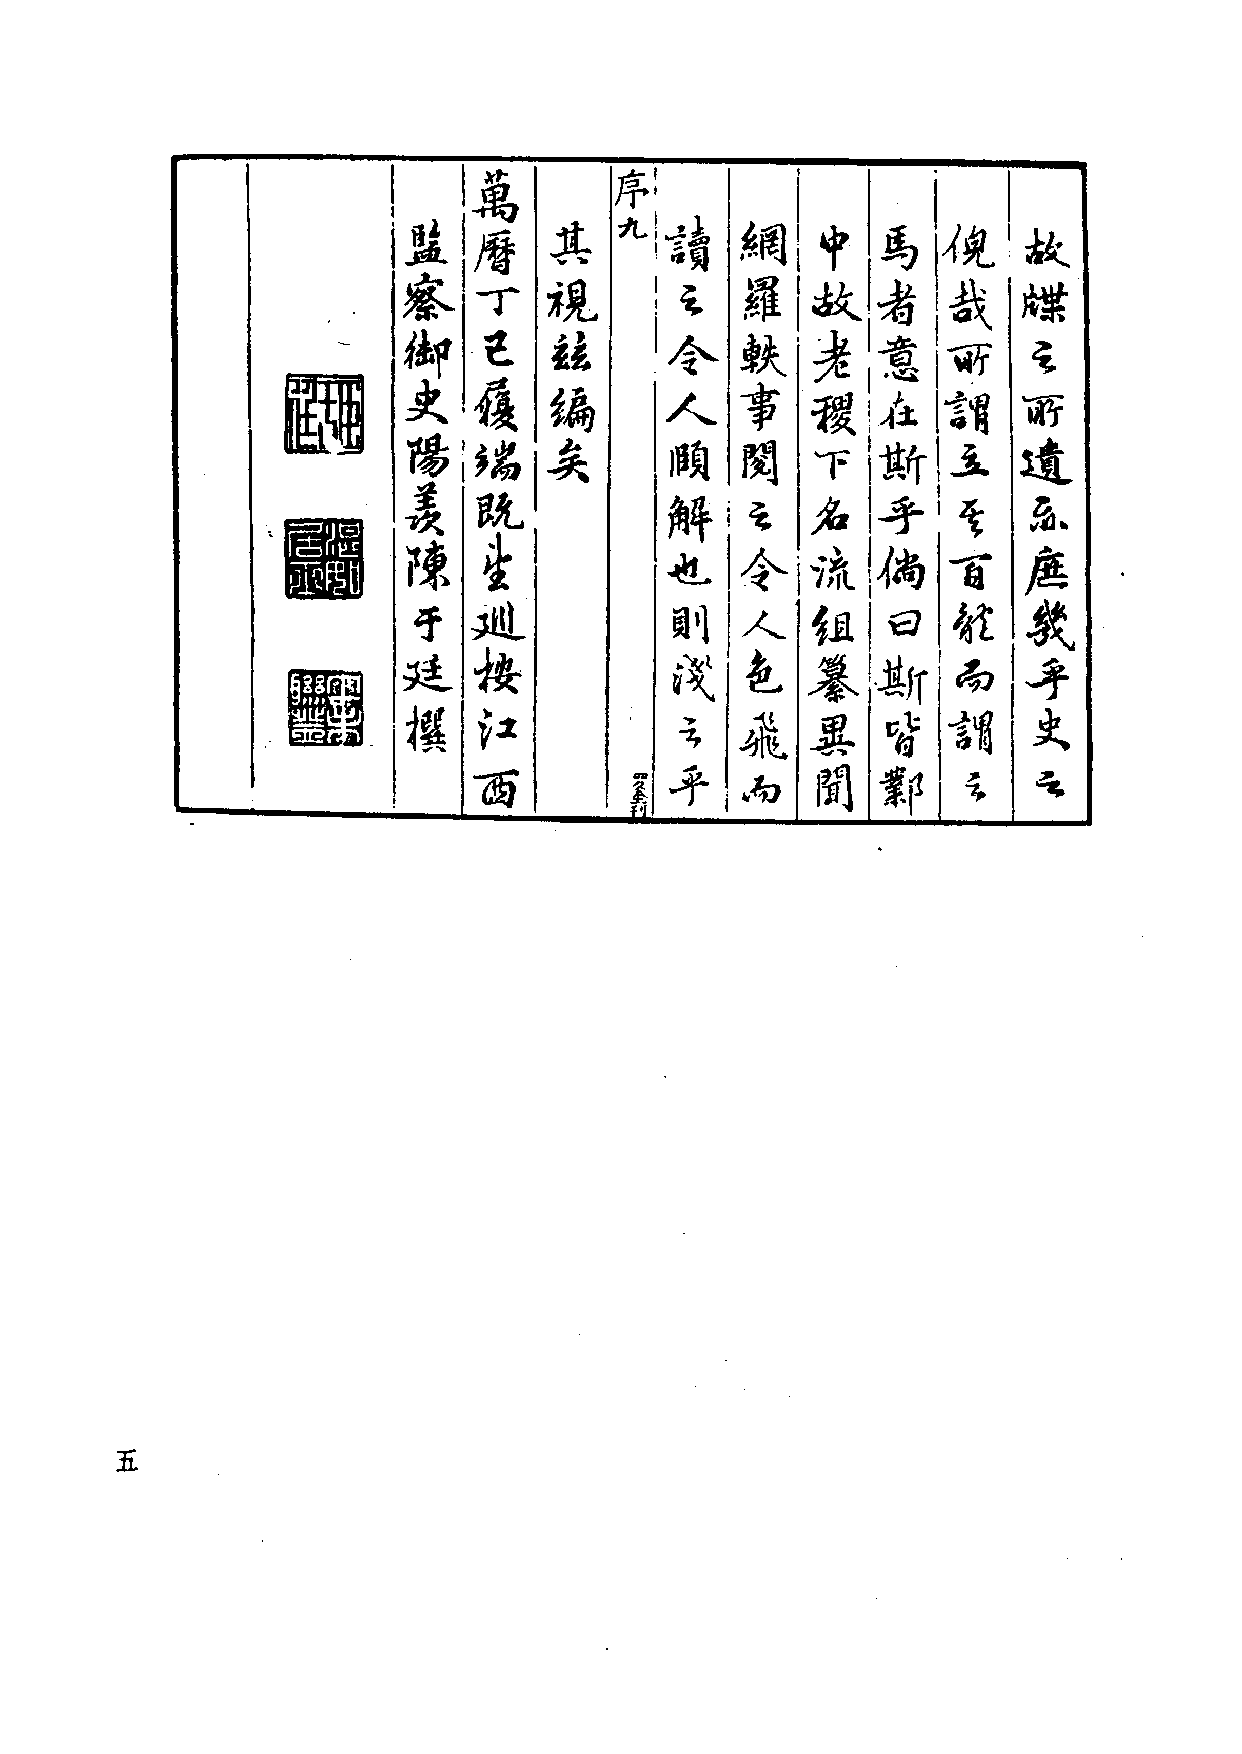 故牒之所遺亦庶幾乎史之
倪哉所謂立言百龍而謂云
馬者意在斯乎倘曰斯皆鄴
中故老稷下名流組纂異聞
網羅軼事閱之令人色飛而
讀之令人頤解也則淺之乎
序九
其視茲編矣
萬曆丁巳履端既望廵按江西
監察御史陽羨陳于廷撰
五